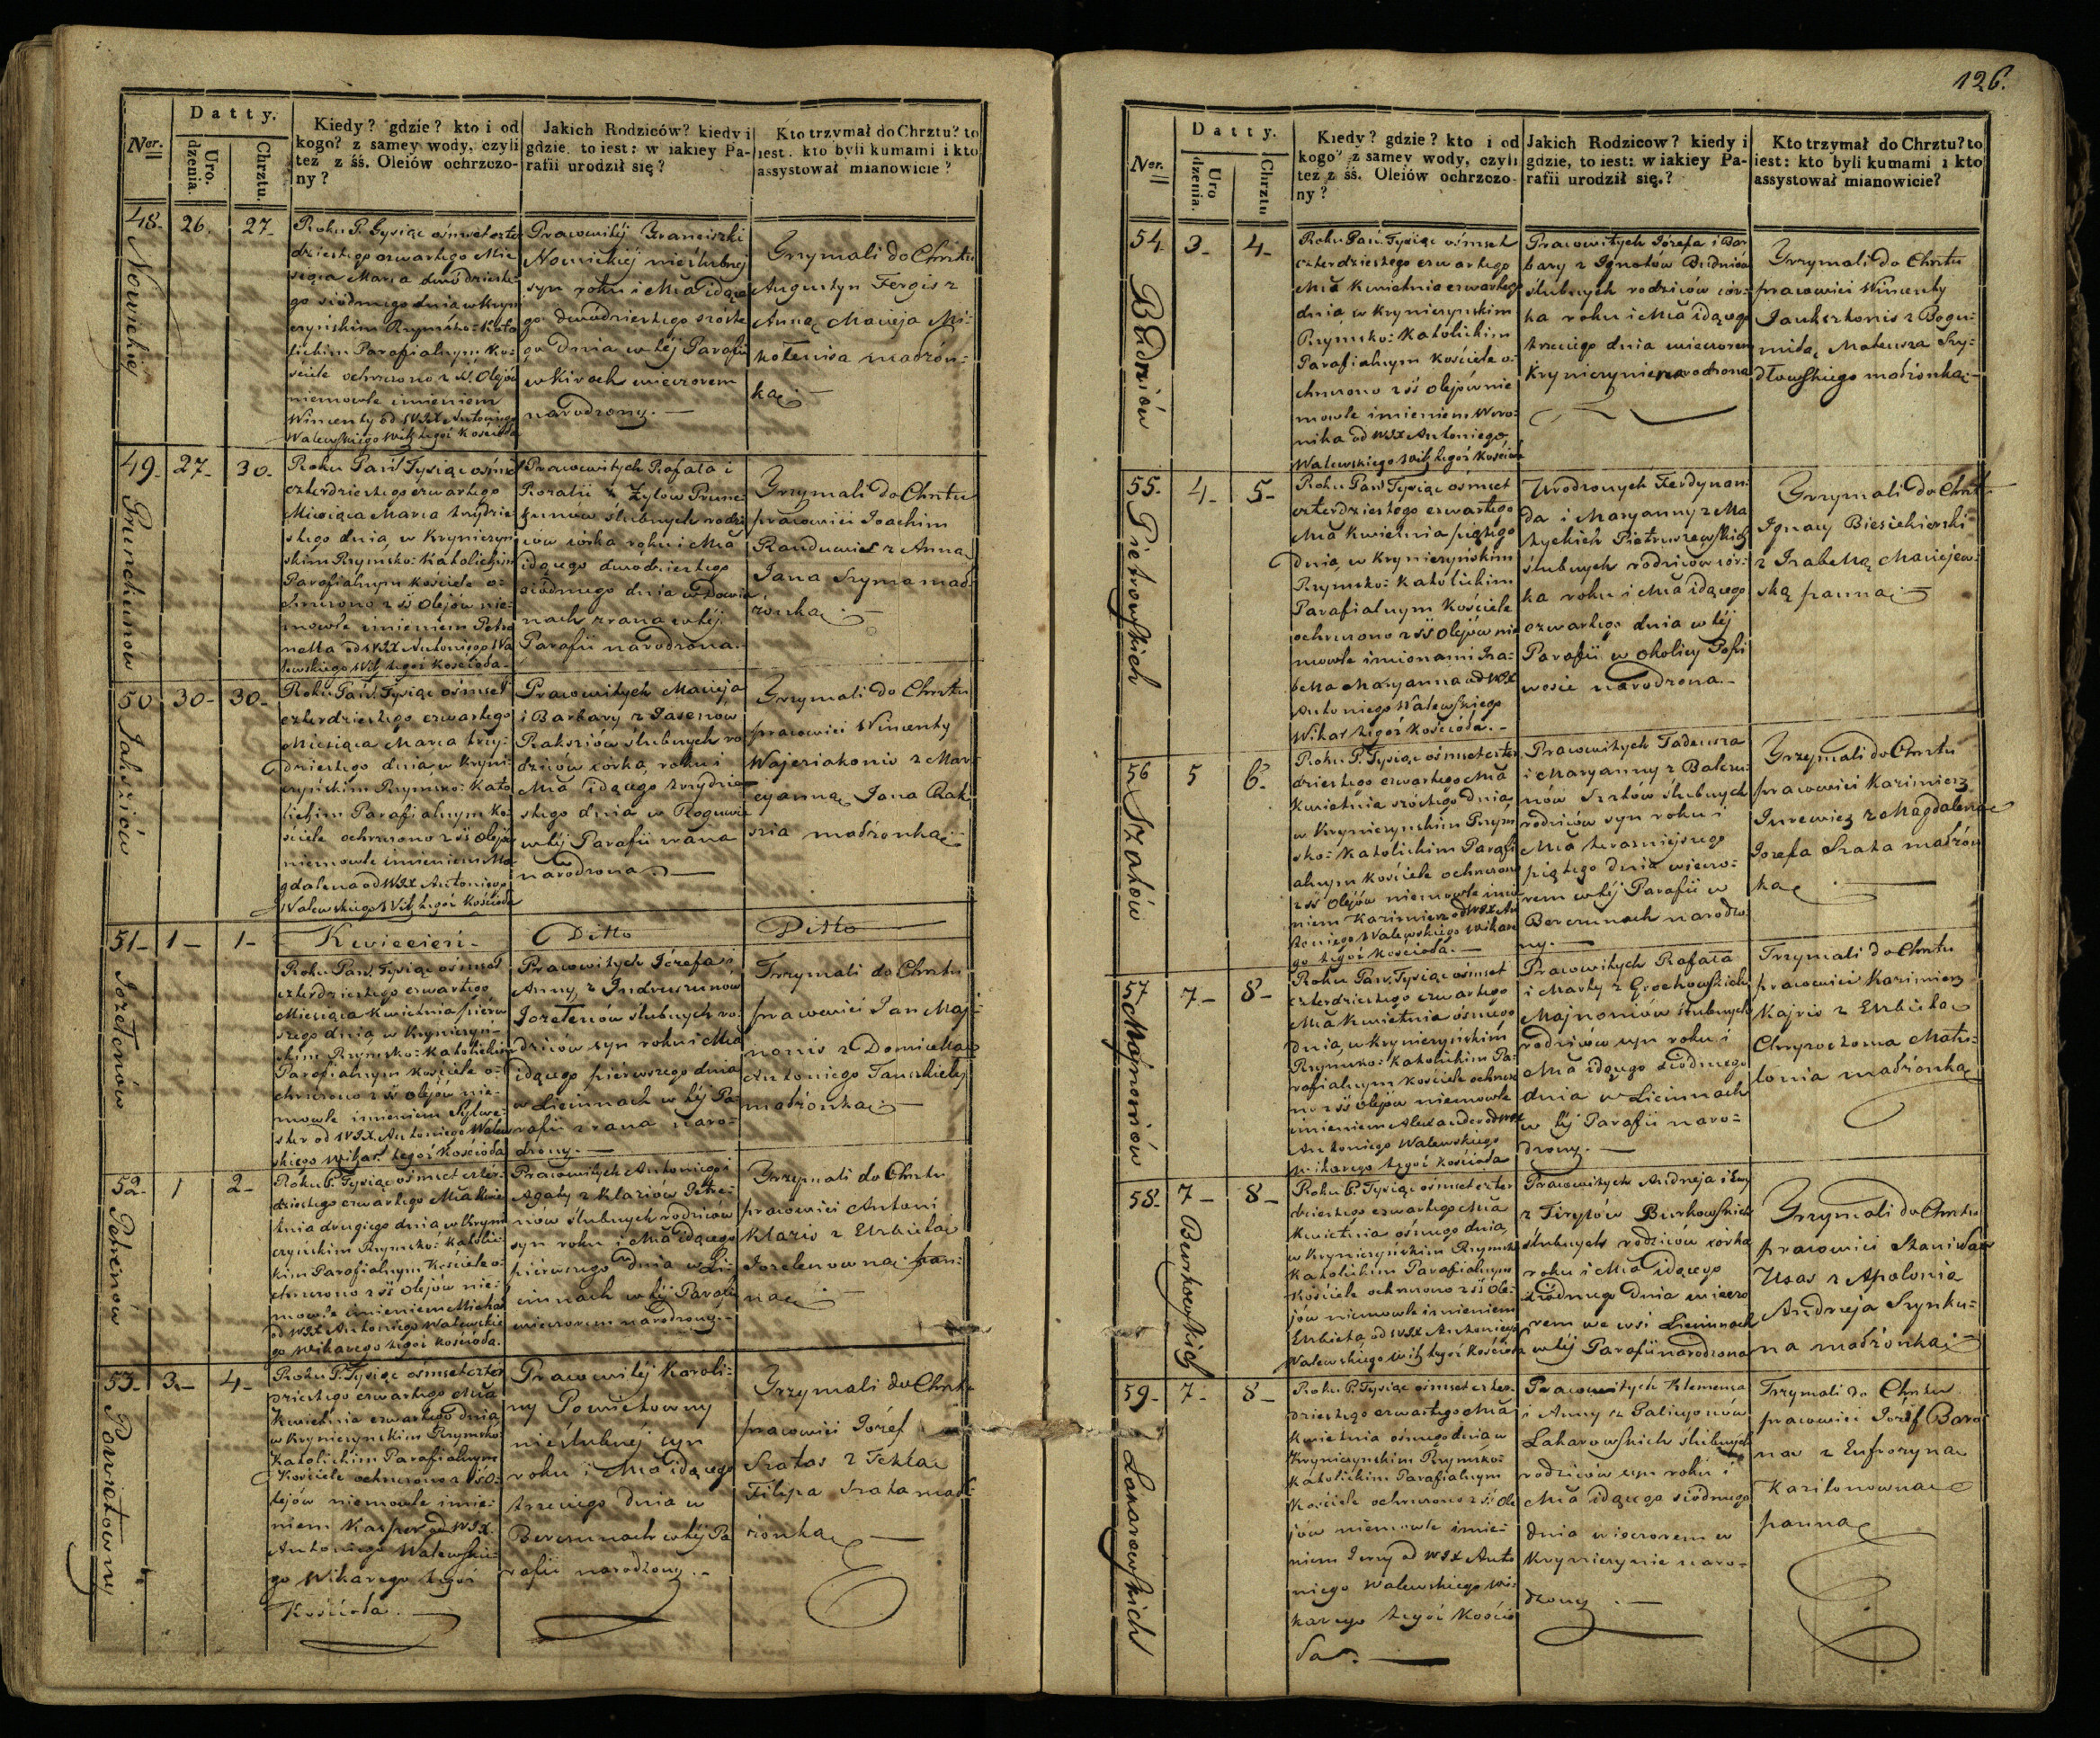 Nor.
Datty.
Uro.
dzenia.
Chrztu.
Kiedy? gdzie? kto i od
kogo? z samey wody, czyli
też z śś. Oleiów ochrzczo-
ny?
Jakich Rodziców? kiedy i
gdzie, to iest: w iakiey Pa-
rafii urodził się?
Kto trzymał do Chrztu? to
iest. kto byli kumami i kto
assystował mianowicie?
48.
Nowickiej
26.
27.
Roku P. Tysiąc ośmset czter
dziestego czwartego Mie
siąca Marca dwódzieste
go siódmego dnia w Kryn
czyńskim Rzymsko=Kato
lickim Parafialnym Ko=
ściele ochrzczono z śś. Olejów
niemowle imieniem
Wincenty od WJX Antoniego
Walewskiego Wik. tegoż Kościoła
Pracowitéj Franciszki
Nowickiéj nieślubnéj
syn roku i Mca idące
go dwódziestego szóste
go dnia w téj Parafii
w Kirach wieczorem
narodzony. —
Trzymali do Chrztu
Augustyn Fergis z
Anną Macieja Mi-
kołenisa małżon=
ką —
49.
Prunckunów
27-
30-
Roku Pań. Tysiąc ośmset
czterdziestego czwartego
Miesiąca Marca trzydzie-
stego dnia, w Kryniczyń
skim Rzymsko=Katolickim
Parafialnym Kościele o=
chrzczono z śś Olejów nie=
mowle imieniem Petro
nella od WJX Antoniego Wa
lewskiego Wik. tegoż Kościoła-
Pracowitych Rafała i
Rozalii z Zylów Prunc
kunów ślubnych rodzi
ców córka roku i Mca
idącego dwódziestego
siódmego dnia w Dowia
nach z rana w téj
Parafii narodzona.
Trzymali do Chrztu
pracowici Joachim
Randuwicz z Anną
Jana Szyma mał-
żonką —
50
30-
30-
Roku Pań. Tysiąc ośmset
czterdziestego czwartego
Miesiąca Marca trzy=
dziestego dnia, w Kryni=
czyńskim Rzymsko=Kato
lickim Parafialnym Ko=
ściele ochrzczono z śś Olejów
niemowle imieniem Ma
gdalena od WJX Antoniego
Walewskiego Wik. tegoż Kościoła
Pracowitych Macieja
i Barbary z Jasenów
Raksziów ślubnych ro
dziców córka, roku i
Mca idącego trzydzie
stego dnia w Roguwie
w téj Parafii z rana
narodzona. —
Trzymali do Chrztu
pracowici Wincenty
Wajeziakonis z Mar
cyanną Jana Rak
szia małżonką
51-
Jozełenów
1-
1-
Kwiecień-
Ditto
Ditto
Roku Pań. Tysiąc ośmset
czterdziestego czwartego
Miesiąca Kwietnia pierw
szego dnia w Krynczyń-
skim Rzymsko=Katolickim
Parafialnym Kościele o=
chrzczono z śś Olejów nie-
mowle imieniem Sylwe-
ster od WJX. Antoniego Walew
skiego Wikar. tegoż Kościoła
Pracowitych Józefa i
Anny z Indruszunów
Jozełenów ślubnych ro-
dziców syn roku i Mca
idącego pierwszego dnia
w Licinnach w téj Pa-
rafii z rana naro-
dzony. —
Trzymali do Chrztu
pracowici Jan Maj-
nonis z Domicellą
Antoniego Tanskiela
małżonką —
52-
Petrenów
1
2-
Roku P. Tysiąc ośmset czter-
dziestego czwartego Mca Kwie
tnia drugiego dnia w Kryni
czyńskim Rzymsko=Katolic=
kim Parafialnym Kościele o=
chrzczono z śś Olejów nie=
mowle imieniem Michał
od WJX Antoniego Walewskie
go Wikarego tegoż Kościoła.
Pracowitych Antoniego i
Agaty z Klaziów Petre-
nów ślubnych rodziców
syn roku i Mca idącego
pierwszego dnia w Li-
cinnach w téj Parafii
wieczorem narodzony.-
Trzymali do Chrztu
pracowici Antoni
Klazis z Elżbietą
Jozelenowną pan=
ną
53-
Powiłowny
3.-
4-
Roku P. Tysiąc ośmset czter
dziestego czwartego Mca
Kwietnia czwartego dnia,
w Krynczyńskim Rzymsko
Katolickim Parafialnym
Kościele ochrzczono z śś O-
lejów niemowle imie-
niem Kasper od WJX.
Antoniego Walewskie-
go Wikarego tegoż
Kościoła. —
Pracowitéj Karoli-
ny Powiłowny
nieślubnéj syn
roku i Mca idącego
trzeciego dnia w
Berczunach w téj Pa
rafii narodzony. -
Trzymali do Chrztu
pracowici Józef
Szatas z Teklą
Filipa Szata mał-
żonką —
126.
Nor.
Datty.
Uro
dzenia.
Chrztu
Kiedy? gdzie? kto i od
kogo? z samey wody, czyli
też z śś. Oleiów ochrzczo-
ny?
Jakich Rodzicow? kiedy i
gdzie, to iest: w iakiey Pa-
rafii urodził się.?
Kto trzymał do Chrztu? to
iest: kto byli kumami i kto
assystował mianowicie?
54
Budnów
3-
4-
Roku Pań. Tysiąc ośmset
czterdziestego czwartego
Mca Kwietnia czwartego
dnia, w Krynczyńskim
Rzymsko=Katolickim
Parafialnym Kościele o-
chrzczono z śś Olejów nie
mowle imieniem Wero-
nika od WJX Antoniego
Walewskiego Wik. tegoż Kościoła
Pracowitych Józefa i Bar
bary z Ignatów Budnów
ślubnych rodziców cór-
ka roku i Mca idącego
trzeciego dnia wieczorem
w Krynczynie narodzona
Trzymali do Chrztu
pracowici Wincenty
Jankszkonis z Bogu-
miłą Mateusza Szy-
dłowskiego małżonką —
55-
Pietrowskich
4-
5-
Roku Pań. Tysiąc ośmset
czterdziestego czwartego
Mca Kwietnia piątego
dnia, w Krynczyńskim
Rzymsko=Katolickim
Parafialnym Kościele
ochrzczono z śś Olejów nie
mowle imionami Iza-
bella Maryanna od WJX
Antoniego Walewskiego
Wikar. tegoż Kościoła. —
Urodzonych Ferdynan-
da i Maryanny z Ma
tyckich Piotruszewskich
ślubnych rodziców cór-
ka roku i Mca idącego
czwartego dnia w téj
Parafii w okolicy Pofir
wocie narodzona.-
Trzymali do Chrztu
Ignacy Biesiekierski
z Izabellą Maciejew-
ską panną —
56
Szatów
5
6-
Roku P. Tysiąc ośmset czter
dziestego czwartego Mca
Kwietnia szóstego dnia,
w Krynczyńskim Rzym
sko=Katolickim Parafi
alnym Kościele ochrzczono
z śś Olejów niemowle imie
niem Kazimierz od WJX An
toniego Walewskiego Wikare
go tegoż Kościoła.—
Pracowitych Tadeusza
i Maryanny z Balczu-
nów Szatów ślubnych
rodziców syn roku i
Mca teraźniejszego
piątego dnia wieczo-
rem w téj Parafii w
Berczunach narodzo
ny.—
Trzymali do Chrztu
pracowici Kazimierz
Jurewicz z Magdaleną
Jozefa Szata małżon
ką —
57
Majnoniów
7-
8-
Roku Pań. Tysiąc ośmset
czterdziestego czwartego
Mca Kwietnia ósmego
dnia, w Krynczyńskim
Rzymsko=Katolickim Pa-
rafialnym Kościele ochrzczo
no z śś Olejów niemowle
imieniem Alexander od WJX
Antoniego Walewskiego
Wikarego tegoż Kościoła
Pracowitych Rafała
i Marty z Grochowskich
Majnoniów ślubnych
rodziców syn roku i
Mca idącego siódmego
dnia w Licinnach
w téj Parafii naro=
dzony.—
Trzymali do Chrztu
pracowici Kazimierz
Kajris z Elżbietą
Chryzostoma Matu-
lonia małżonką
58-
Burkowskich
7-
8-
Roku P. Tysiąc ośmset czter
dziestego czwartego Mca
Kwietnia ósmego dnia,
w Krynczyńskim Rzymsko
Katolickim Parafialnym
Kościele ochrzczono z śś Ole-
jów niemowle imieniem
Elżbieta od WJX Antoniego
Walewskiego Wik. tegoż Kościoła
Pracowitych Andreja i Ewy
z Tirylów Burkowskich
ślubnych rodziców córka
roku i Mca idącego
siódmego dnia wieczo
rem we wsi Licinnach
w téj Parafii narodzona
Trzymali do Chrztu
pracowici Stanisław
Uzas z Apolonią
Andreja Szynku-
na małżonką
59-
7-
8-
Roku P. Tysiąc ośmset czter-
dziestego czwartego Mca
Kwietnia ósmego dnia w
Krynczyńskim Rzymsko=
Katolickim Parafialnym
Kościele ochrzczono z śś Ole
jów niemowle imie-
niem Jerzy od WJX Anto
niego Walewskiego Wi-
karego tegoż Kościo
ła. —
Pracowitych Klemensa
i Anny z Galicyonów
ślubnych
rodziców syn roku i
Mca idącego siódmego
dnia wieczorem w
Krynczynie naro-
dzony. —
Trzymali do Chrztu
pracowici Józef Baro
nas z Eufrozyną
Karitonowną
panną